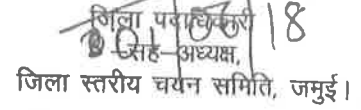 जिला पदाधिकारी
सह-अध्यक्ष,
जिला स्तरीय चयन समिति, जमुई।